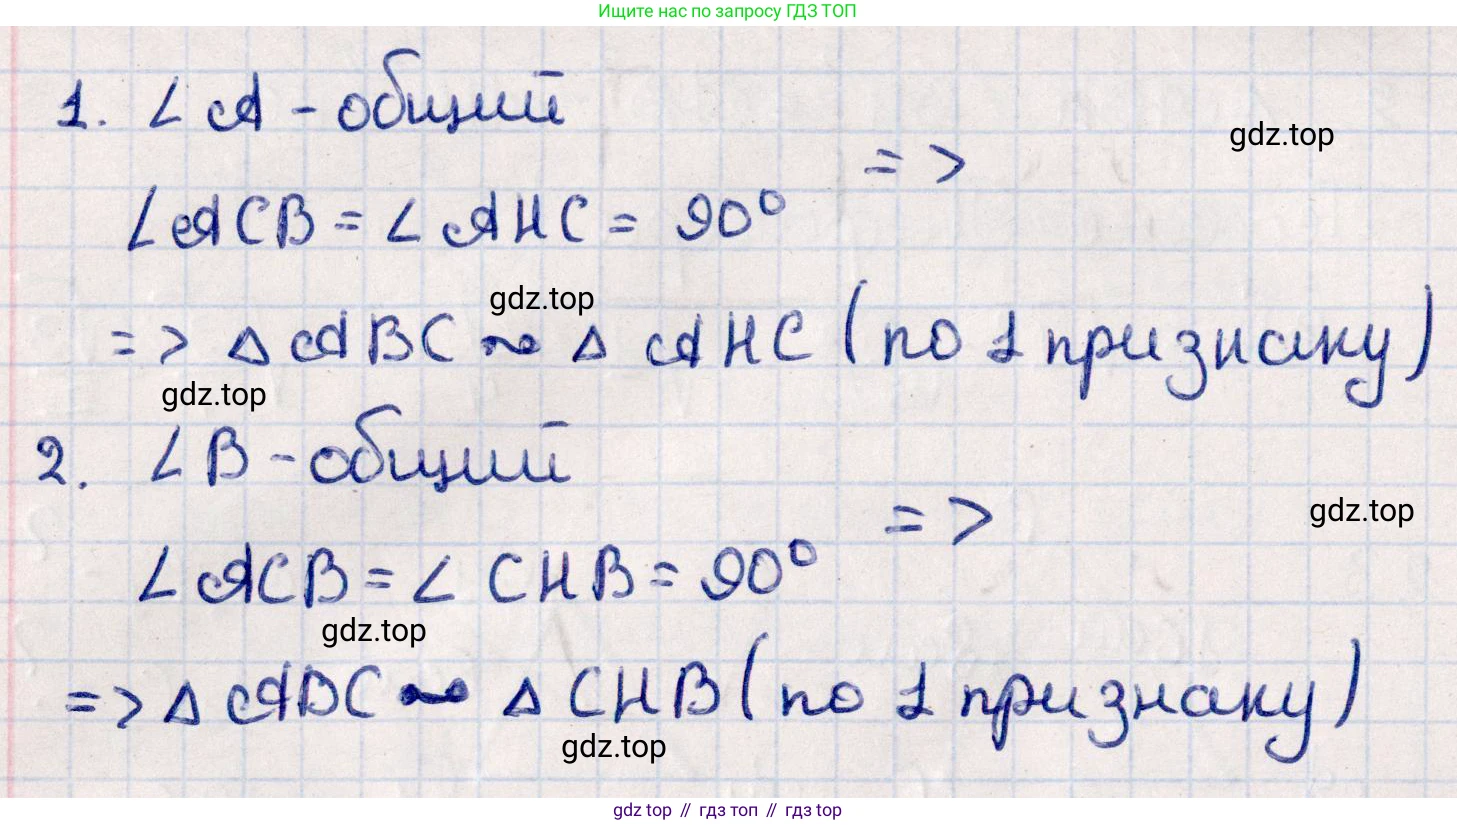 Ищите нас по запросу ГДЗ ТОП
1. ∠A - общий
=>
gdz.top
∠ACB = ∠AHC = 90°
gdz.top
=> △ABC ~ △AHC (по 1 признаку)
gdz.top
2. ∠B - общий
=>
gdz.top
∠ACB = ∠CHB = 90°
gdz.top
=> △ABC ~ △CHB (по 1 признаку)
gdz.top
gdz top // гдз топ // gdz top